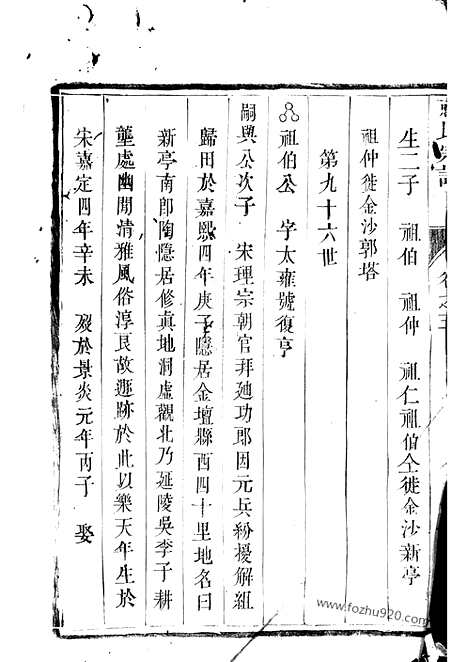 生二子　祖伯　祖仲　祖仁祖伯仝徙金沙新亭
祖仲徙金沙郭塔
第九十六世
祖伯公　字太雍號復亨
嗣興公次子　宋理宗朝官拜廸功郎因元兵紛擾解組
歸田於嘉熙四年庚子隱居金壇縣西四十里地名曰
新亭南郎陶隱居修真地洞虛觀北乃延陵吳季子耕
壟處幽閒清雅風俗淳良故遯跡於此以樂天年生於
宋嘉定四年辛未　歿於景炎元年丙子　娶
www.fozhu920.com